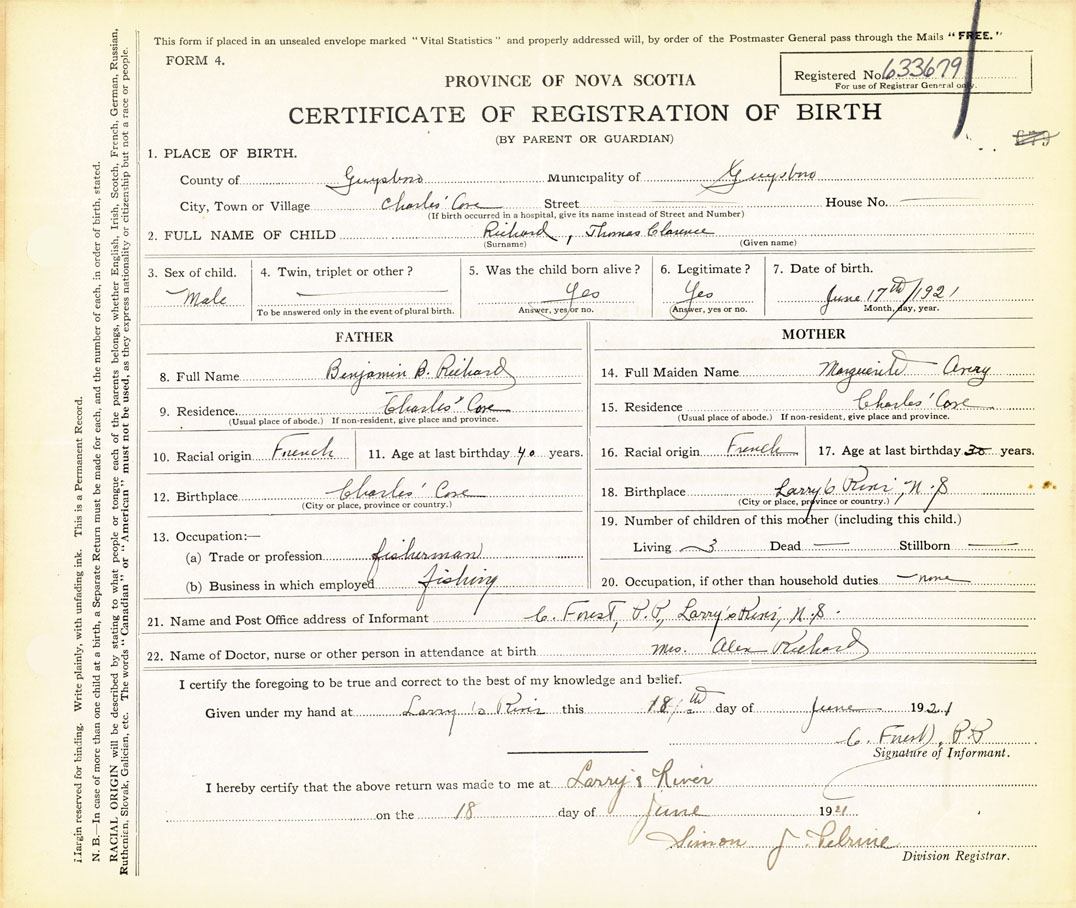 This form if placed in an unsealed envelope marked "Vital Statistics" and properly addressed will, by order of the Postmaster General pass through the Mails "FREE."
FORM 4.
Registered No. 633679
For use of Registrar General only.
PROVINCE OF NOVA SCOTIA
CERTIFICATE OF REGISTRATION OF BIRTH
(BY PARENT OR GUARDIAN)
1. PLACE OF BIRTH.
County of Guysboro Municipality of Guysboro
City, Town or Village Charles' Cove Street House No.
(If birth occurred in a hospital, give its name instead of Street and Number)
2. FULL NAME OF CHILD Richard, Thomas Clarence
(Surname) (Given name)
3. Sex of child. Male
4. Twin, triplet or other?
To be answered only in the event of plural birth.
5. Was the child born alive? Yes
Answer, yes or no.
6. Legitimate? Yes
(Answer, yes or no.
7. Date of birth.
June 17th/1921
Month, day, year.
FATHER
8. Full Name Benjamin B. Richard
9. Residence Charles' Cove
(Usual place of abode.) If non-resident, give place and province.
10. Racial origin French 11. Age at last birthday 40 years.
12. Birthplace Charles' Cove
(City or place, province or country.)
13. Occupation:—
(a) Trade or profession fisherman
(b) Business in which employed fishing
MOTHER
14. Full Maiden Name Marguerite Avery
15. Residence Charles' Cove
(Usual place of abode.) If non-resident, give place and province.
16. Racial origin French 17. Age at last birthday 30 years.
18. Birthplace Larry's River, N.S
(City or place, province or country.)
19. Number of children of this mother (including this child.)
Living 3 Dead — Stillborn —
20. Occupation, if other than household duties none
21. Name and Post Office address of Informant C. Forest, P.P, Larry's River, N.S.
22. Name of Doctor, nurse or other person in attendance at birth Mrs. Alex Richard
I certify the foregoing to be true and correct to the best of my knowledge and belief.
Given under my hand at Larry's River this 18th day of June 1921
C. Forest, P.P
Signature of Informant.
I hereby certify that the above return was made to me at Larry's River
on the 18 day of June 1921
Simon J. Pelrine
Division Registrar.
Margin reserved for binding. Write plainly, with unfading ink. This is a Permanent Record.
N. B.—In case of more than one child at a birth, a Separate Return must be made for each, and the number of each, in order of birth, stated.
RACIAL ORIGIN will be described by stating to what people or tongue each of the parents belongs, whether English, Irish, Scotch, French, German, Russian,
Ruthenian, Slovak, Galician, etc. The words "Canadian" or "American" must not be used, as they express nationality or citizenship but not a race or people.